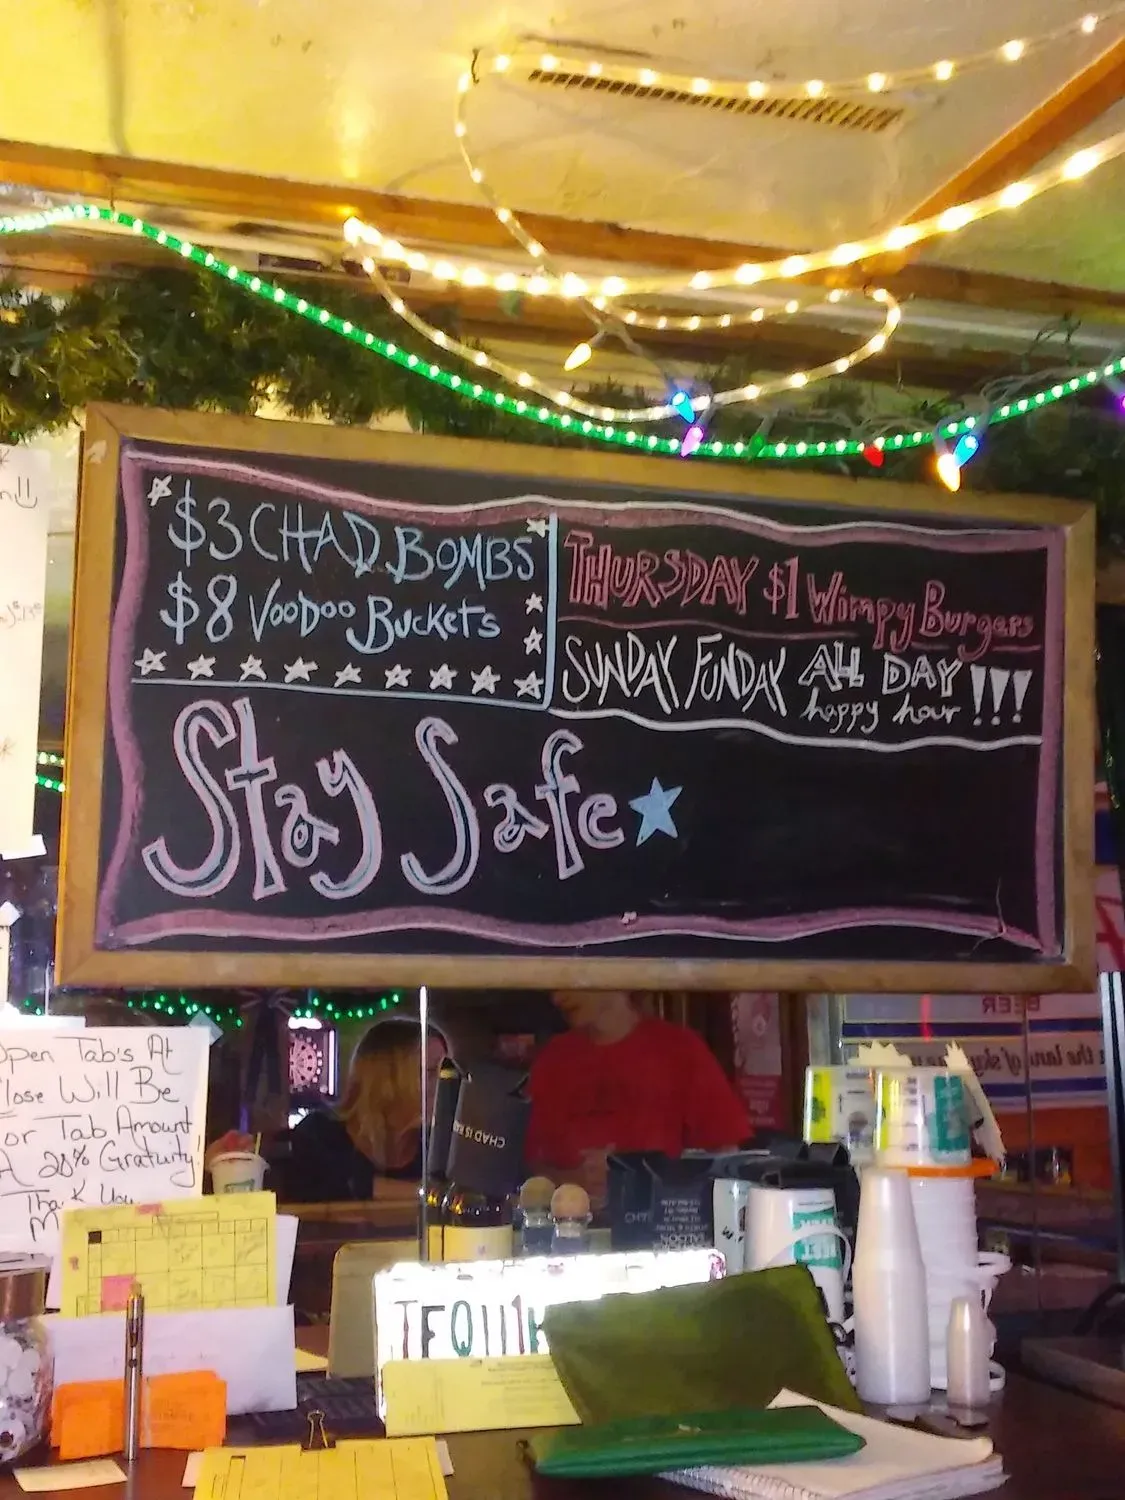 $3 CHAD BOMBS
$8 VOODOO BUCKETS
THURSDAY $1 Wimpy Burgers
SUNDAY FUNDAY ALL DAY
happy hour !!!
Stay Safe
Open Tab's At
Close Will Be
For Tab Amount
20% Gratuity!
Thank You
BEER
the land of sky
CHAD IS
TEQUI